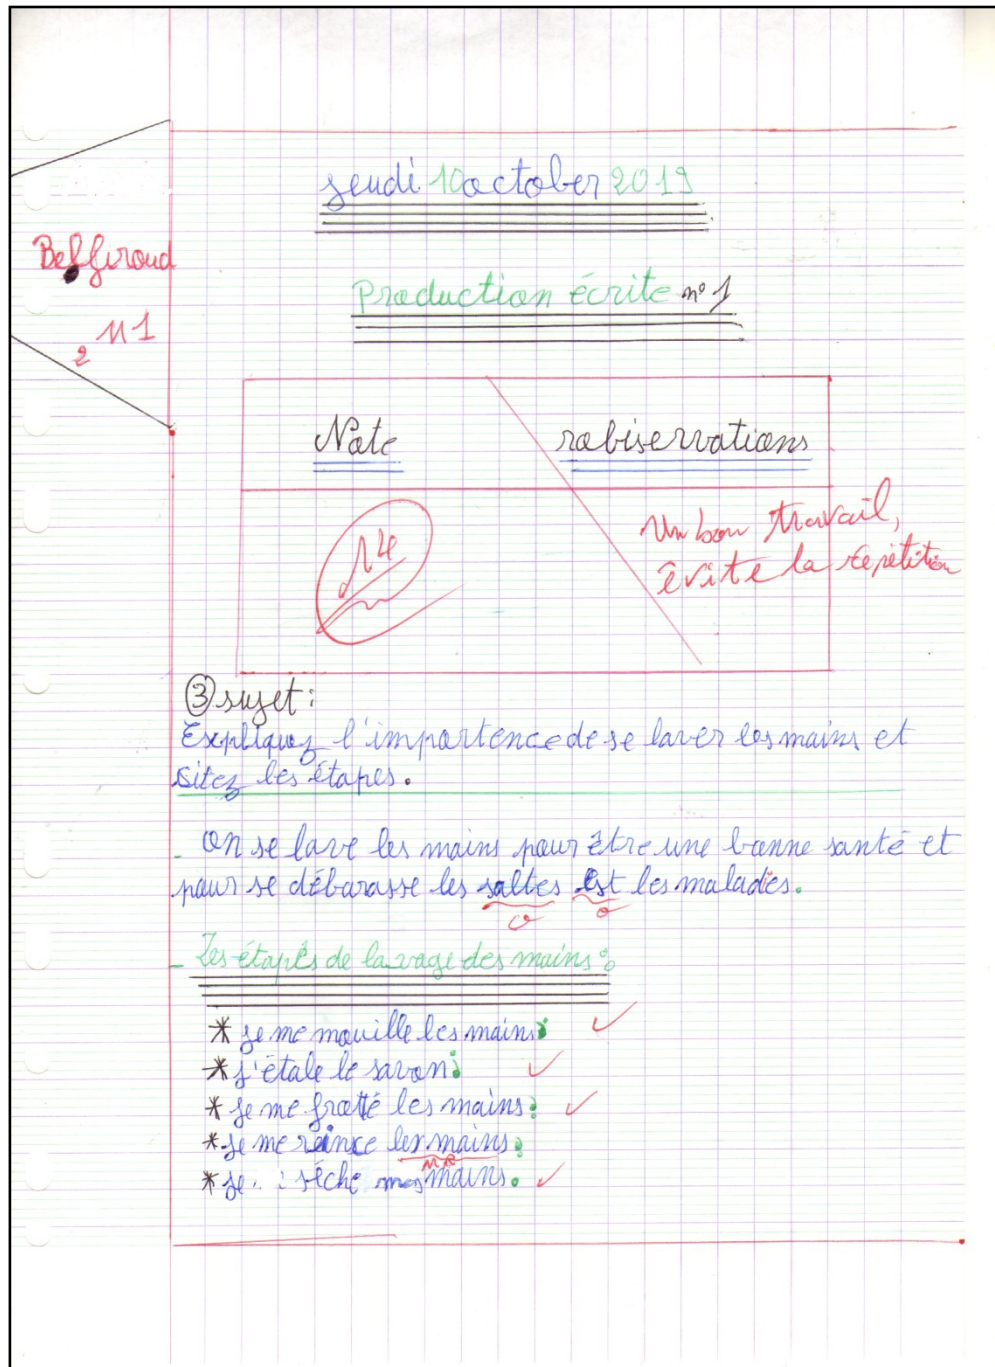 jeudi 10 october 2019
Belfiroud
Production écrite n° 1
2 M1
Note robiservations
14
Un bon travail,
évite la répétition
③ sujet :
Expliquez l'importence de se laver les mains et
sitez les étapes.
- On se lave les mains pour être une bonne santé et
pour se débarasse les saltés est les maladies.
- Les étapes de lavage des mains :
* je me mouille les mains;
* j'étale le savon;
* je me frotté les mains;
* je me rince les mains;
* je sèche mes mains.